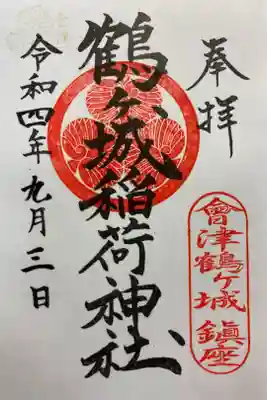 奉拝
會津鶴ヶ城鎮座
鶴ヶ城稲荷神社
令和四年九月三日